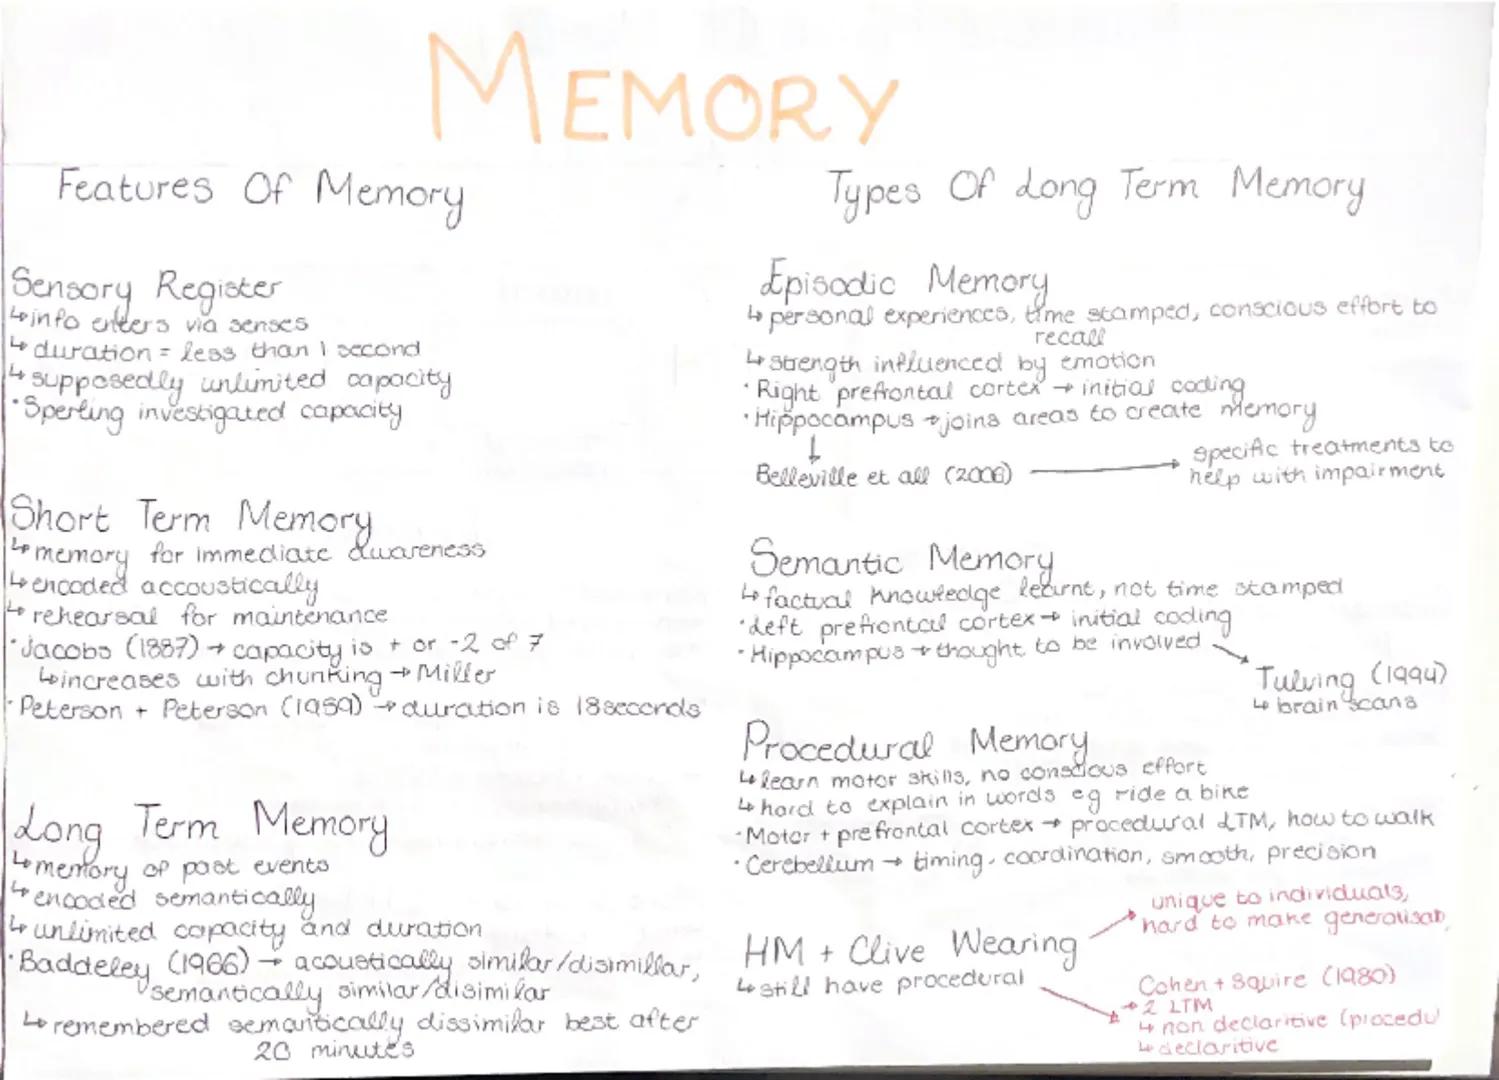 MEMORY
Features Of Memory
Sensory Register
↳ info enters via senses
↳ duration = less than 1 second
↳ supposedly unlimited capacity
• Sperling investigated capacity
Short Term Memory
↳ memory for immediate awareness
↳ encoded accoustically
↳ rehearsal for maintenance
• Jacobs (1887) → capacity is + or -2 of 7
↳ increases with chunking → Miller
• Peterson + Peterson (1959) → duration is 18 seconds
Long Term Memory
↳ memory of past events
↳ encoded semantically
↳ unlimited capacity and duration
• Baddeley (1966) → acoustically similar/disimillar,
semantically similar/disimilar
↳ remembered semantically dissimilar best after
20 minutes
Types Of Long Term Memory
Episodic Memory
↳ personal experiences, time stamped, conscious effort to
recall
↳ strength influenced by emotion
• Right prefrontal cortex → initial coding
• Hippocampus → joins areas to create memory
↓
Belleville et all (2006) → specific treatments to
help with impairment
Semantic Memory
↳ factual knowledge learnt, not time stamped
• Left prefrontal cortex → initial coding
• Hippocampus → thought to be involved
Tulving (1994)
↳ brain scans
Procedural Memory
↳ learn motor skills, no conscious effort
↳ hard to explain in words eg ride a bike
• Motor + prefrontal cortex → procedural LTM, how to walk
• Cerebellum → timing, coordination, smooth, precision
HM + Clive Wearing
↳ still have procedural
unique to individuals,
hard to make generalisab
Cohen + Squire (1980)
→ 2 LTM
↳ non declaritive (procedu
↳ declaritive